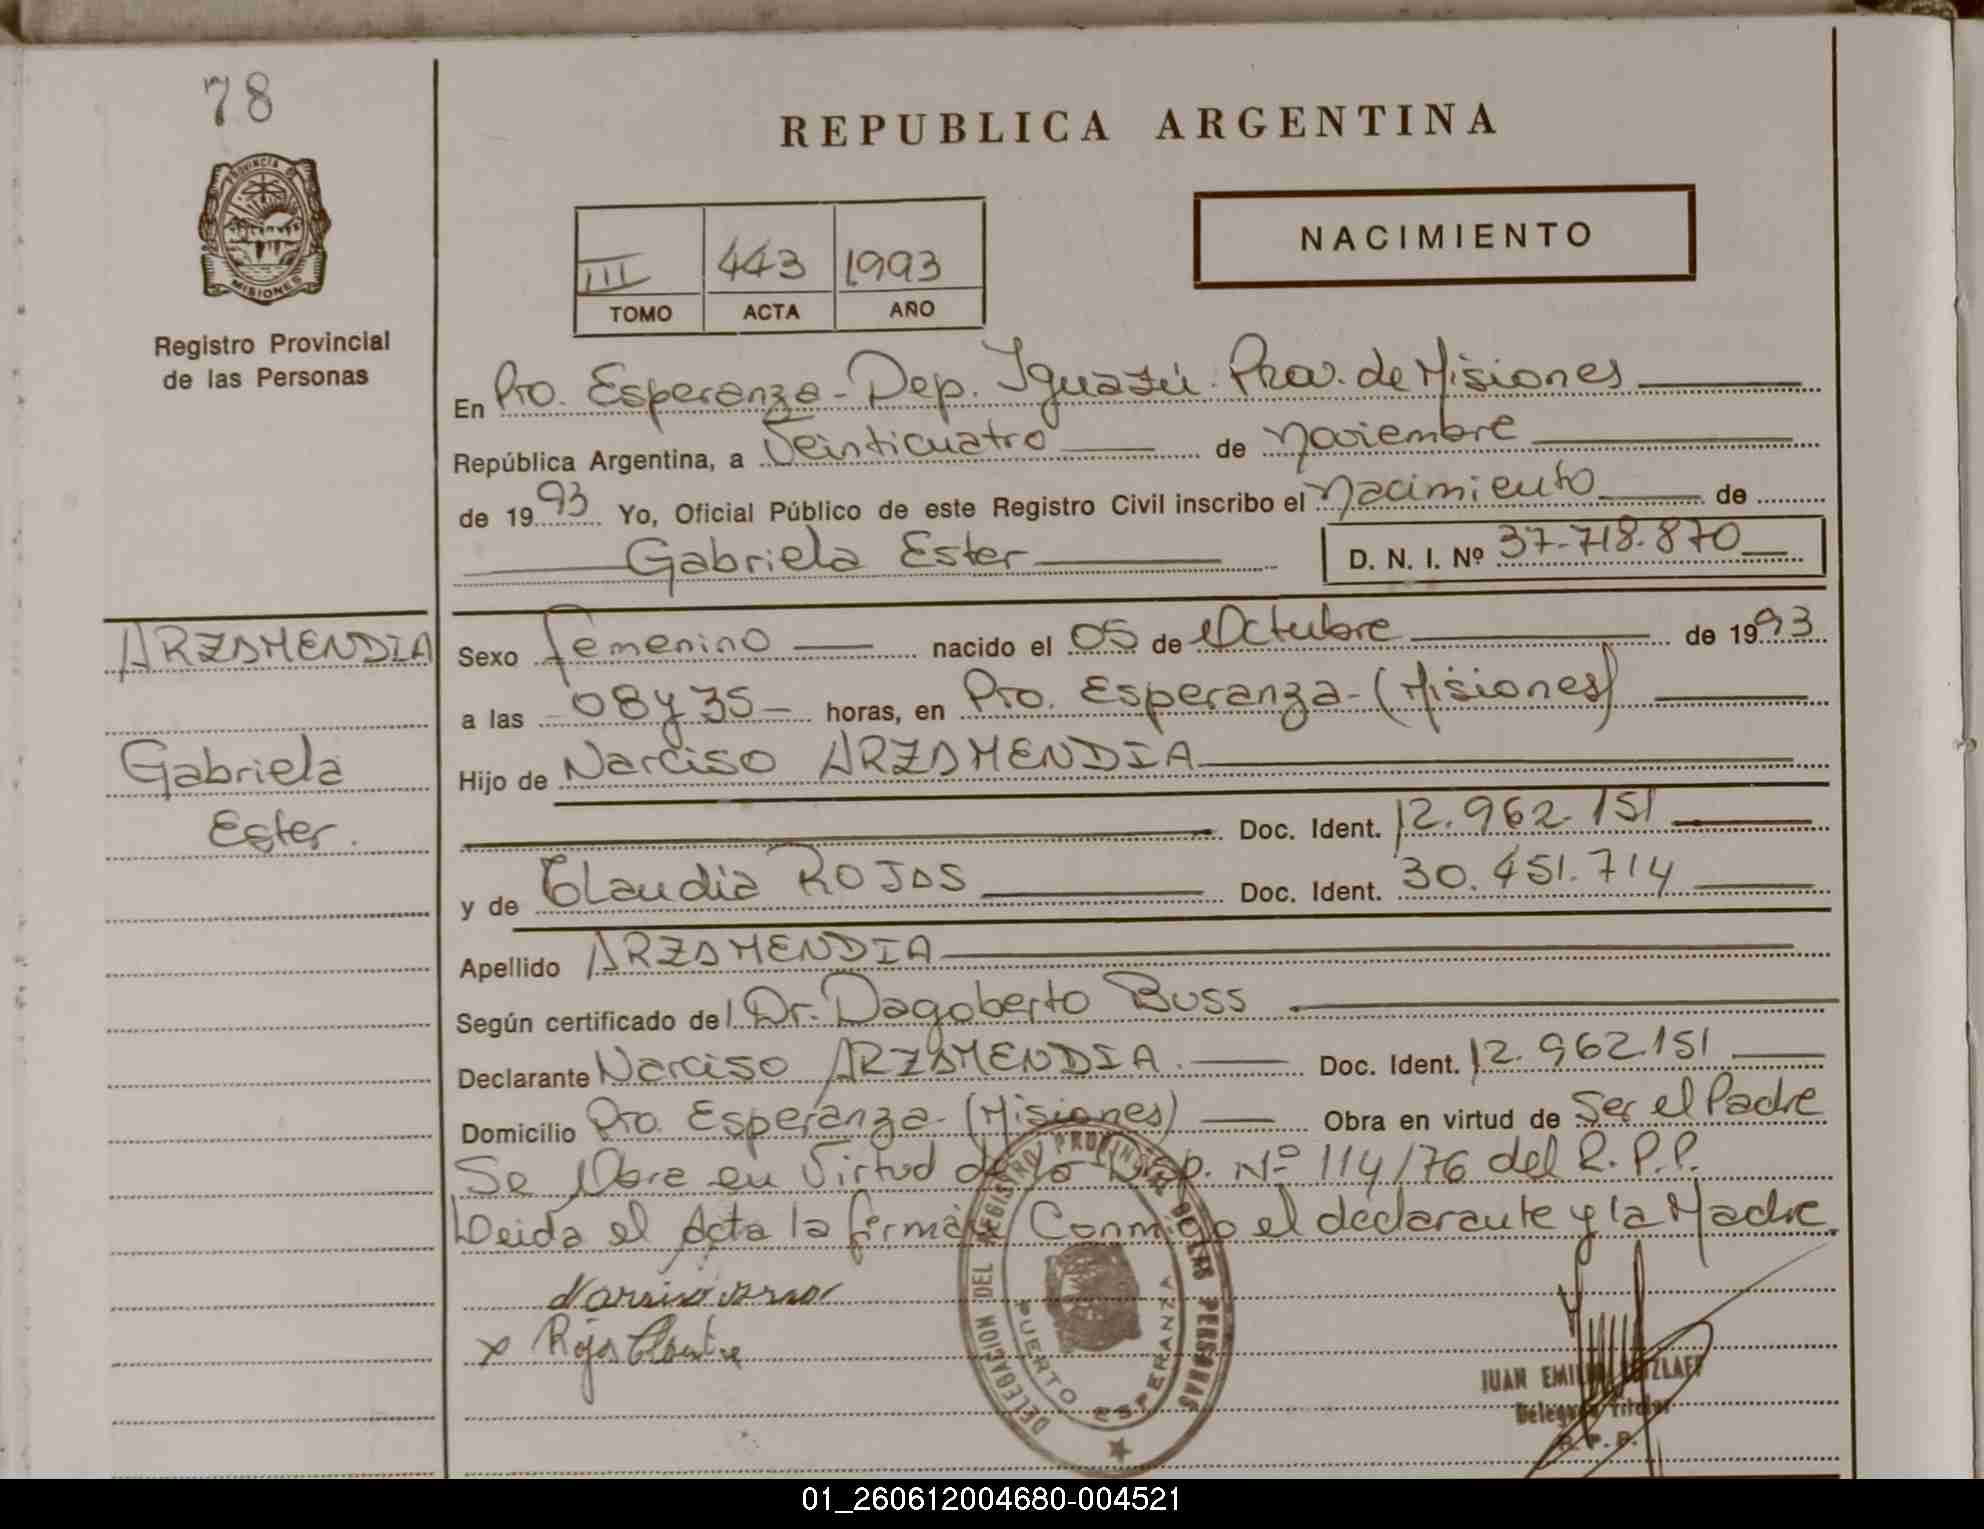 78
REPUBLICA ARGENTINA
PROVINCIA DE
MISIONES
III 443 1993
TOMO ACTA AÑO
NACIMIENTO
Registro Provincial
de las Personas
En Pto. Esperanza - Dep. Iguazú. Prov. de Misiones
República Argentina, a Veinticuatro de Noviembre
de 1993 Yo, Oficial Público de este Registro Civil inscribo el Nacimiento de
Gabriela Ester D. N. I. Nº 37-718.870
ARZAMENDIA
Gabriela
Ester.
Sexo femenino nacido el 05 de Octubre de 1993
a las 08 y 35 horas, en Pto. Esperanza - (Misiones)
Hijo de Narciso ARZAMENDIA
Doc. Ident. 12.962.151
y de Claudia ROJAS Doc. Ident. 30.451.714
Apellido ARZAMENDIA
Según certificado del Dr. Dagoberto Buss
Declarante Narciso ARZAMENDIA. Doc. Ident. 12.962.151
Domicilio Pto. Esperanza - (Misiones) Obra en virtud de Ser el Padre
Se Obra en Virtud de la Disp. Nº 114/76 del R.P.P.
Leida el Acta la firmán Conmigo el declarante y la Madre.
x Rojas
DELEGACION DEL REGISTRO PROVINCIAL DE LAS PERSONAS
PUERTO ESPERANZA
JUAN EMILIO
Delegado Titular
R. P. P.
01_260612004680-004521